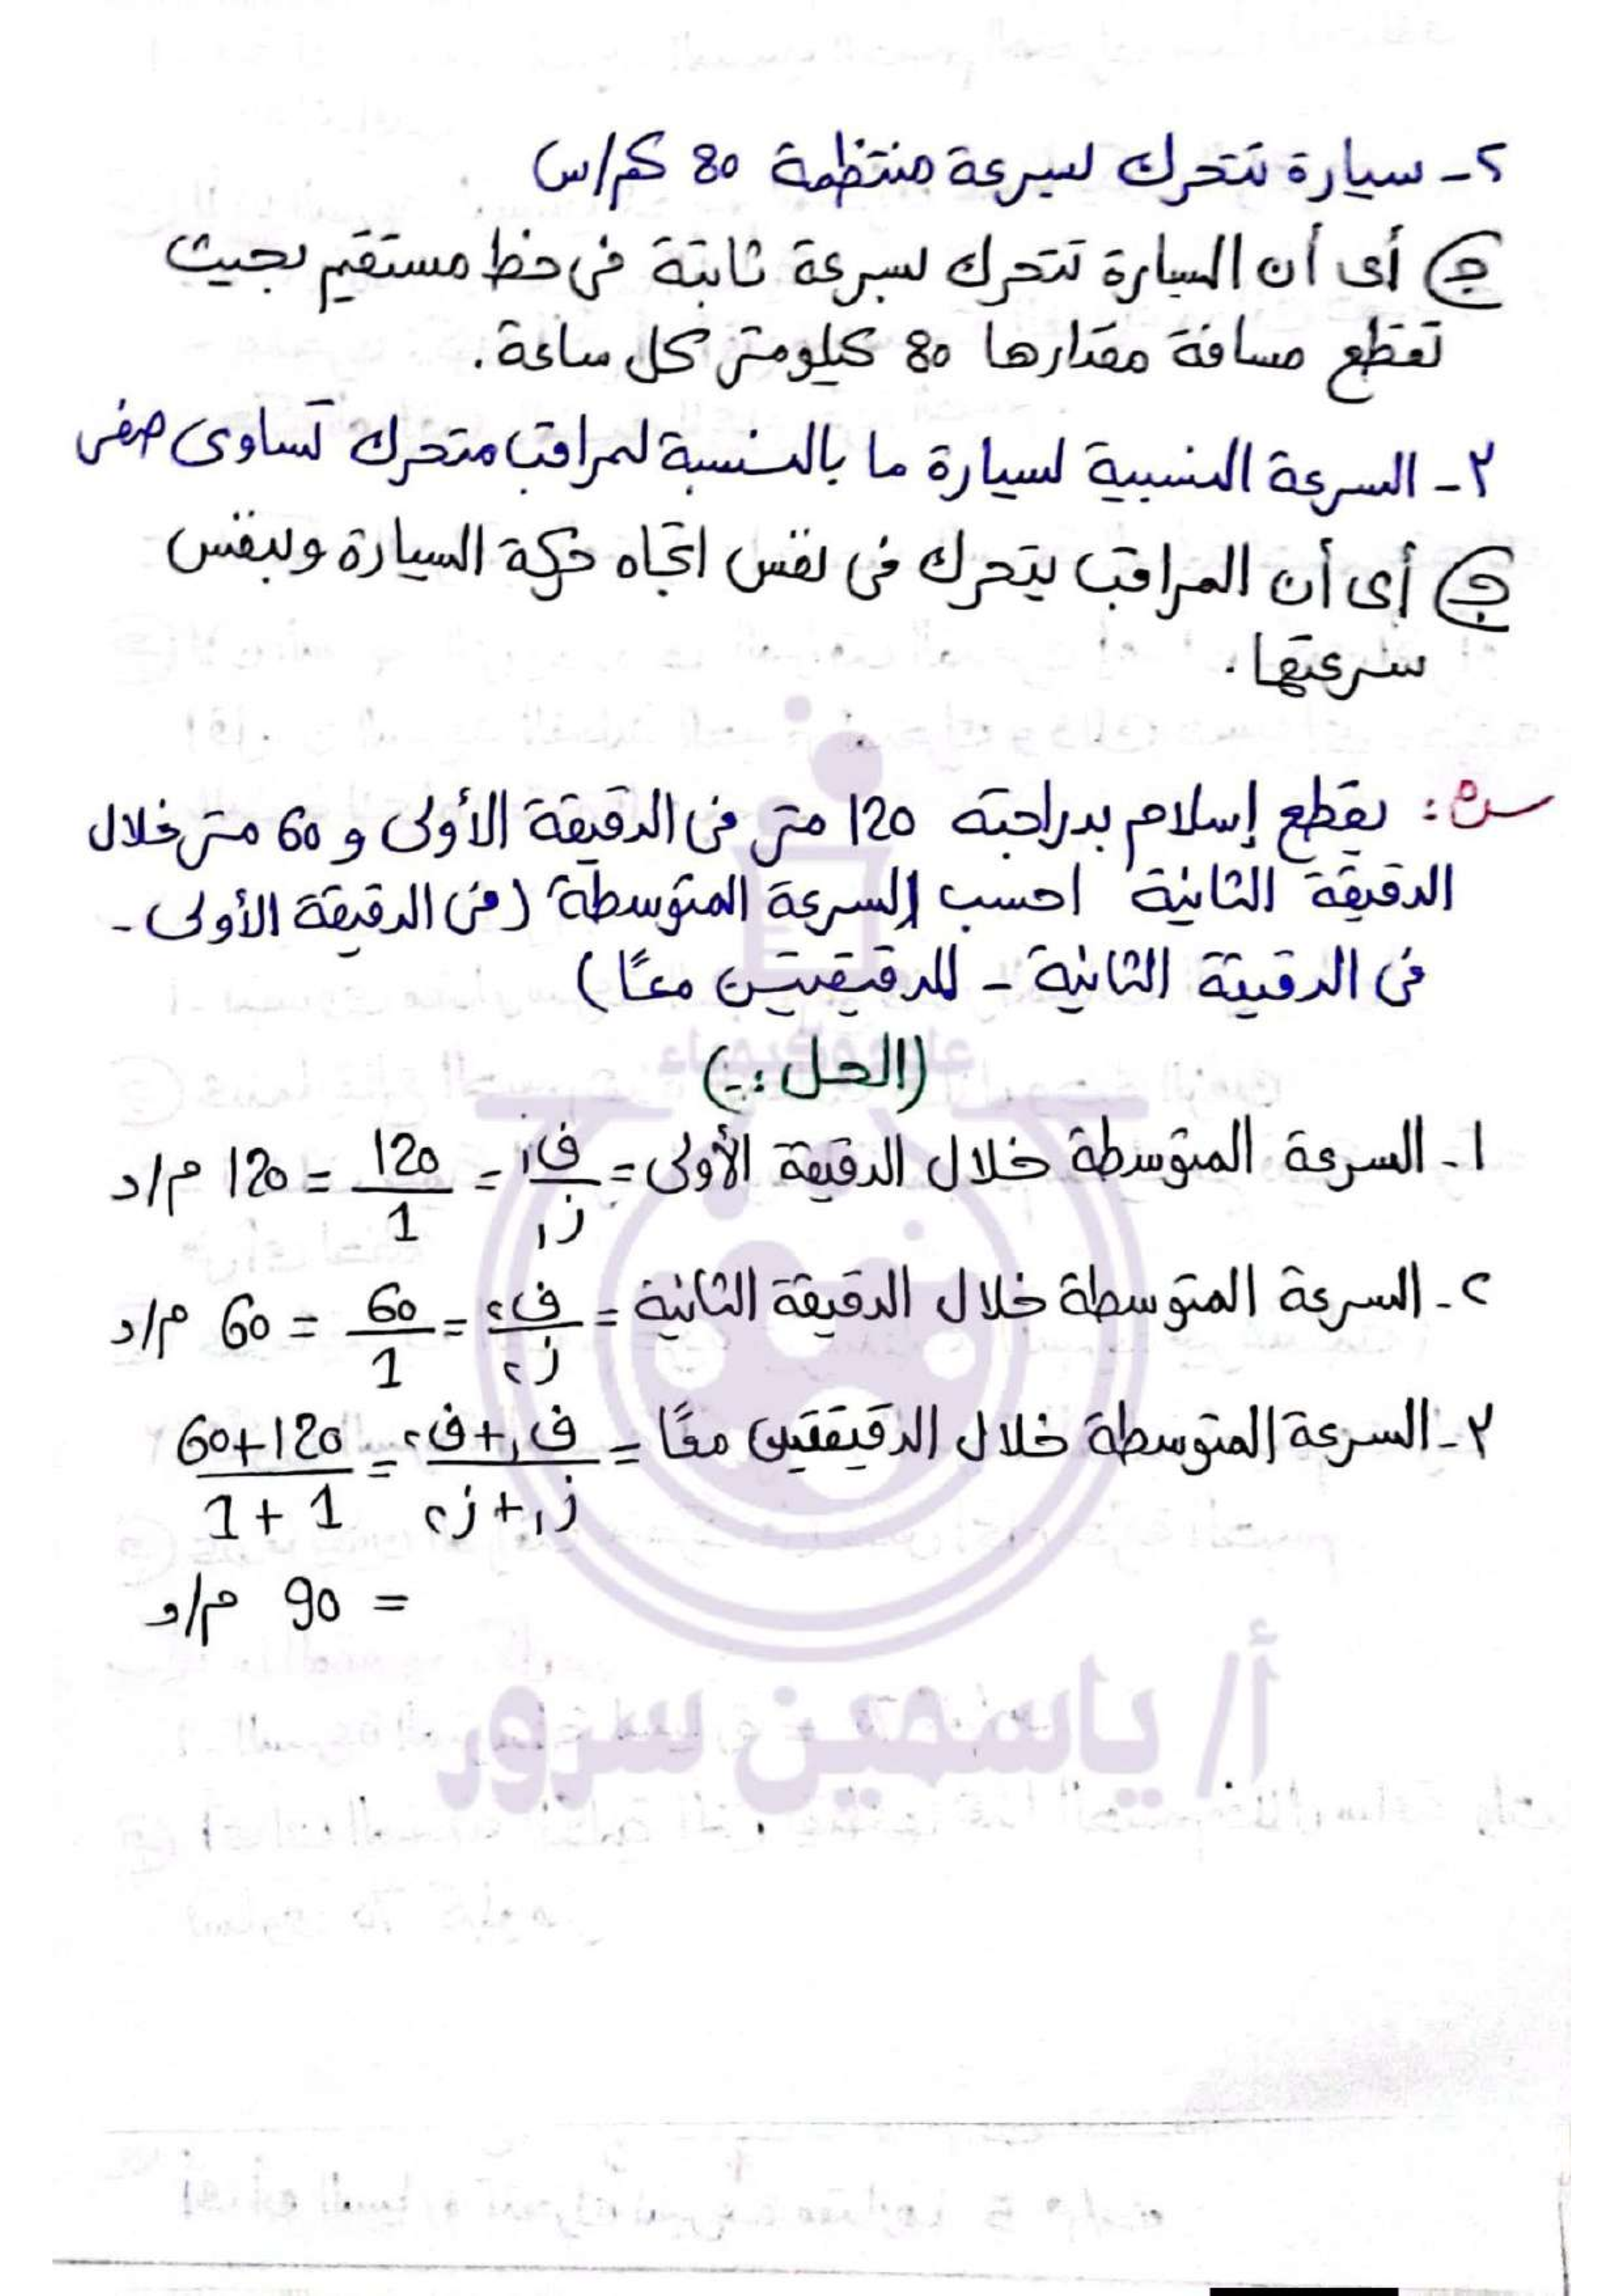 ٢- سيارة تتحرك بسرعة منتظمة 80 كم/س
ج أى أن السيارة تتحرك بسرعة ثابتة فى خط مستقيم بحيث
تقطع مسافة مقدارها 80 كيلومتر كل ساعة.
٣- السرعة النسبية لسيارة ما بالنسبة لمراقب متحرك تساوى صفر
ج أى أن المراقب يتحرك فى نفس اتجاه حركة السيارة وبنفس
سرعتها.
س٥: يقطع إسلام بدراجته 120 متر فى الدقيقة الأولى و 60 متر خلال
الدقيقة الثانية احسب السرعة المتوسطة (فى الدقيقة الأولى -
فى الدقيقة الثانية - للدقيقتين معًا)
(الحل :-)
١- السرعة المتوسطة خلال الدقيقة الأولى = ف١/ز١ = 120/1 = 120 م/د
٢- السرعة المتوسطة خلال الدقيقة الثانية = ف٢/ز٢ = 60/1 = 60 م/د
٣- السرعة المتوسطة خلال الدقيقتين معًا = ف١+ف٢/ز١+ز٢ = 60+120/1+1
= 90 م/د
أ/ ياسمين سرور